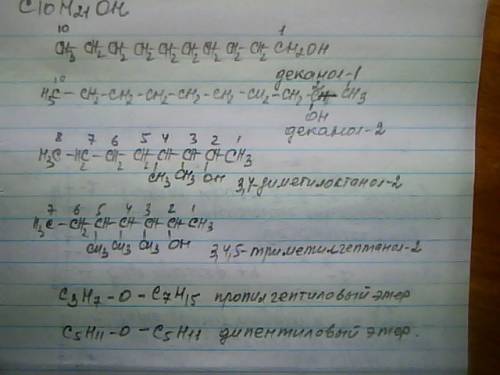 C10H21OH
10 1
CH3 CH2 CH2 CH2 CH2 CH2 CH2 CH2 CH2 CH2OH
деканол-1
10
H3C - CH2 - CH2 - CH2 - CH2 - CH2 - CH2 - CH2 - CH - CH3
OH
деканол-2
8 7 6 5 4 3 2 1
H3C - H2C - CH2 - CH2 - CH - CH - CH - CH3
CH3 CH3 OH
3,4-диметилоктанол-2
7 6 5 4 3 2 1
H3C - CH2 - CH - CH - CH - CH - CH3
CH3 CH3 CH3 OH
3,4,5-триметилгептанол-2
C3H7 - O - C7H15 пропилгептиловый этер
C5H11 - O - C5H11 дипентиловый этер.